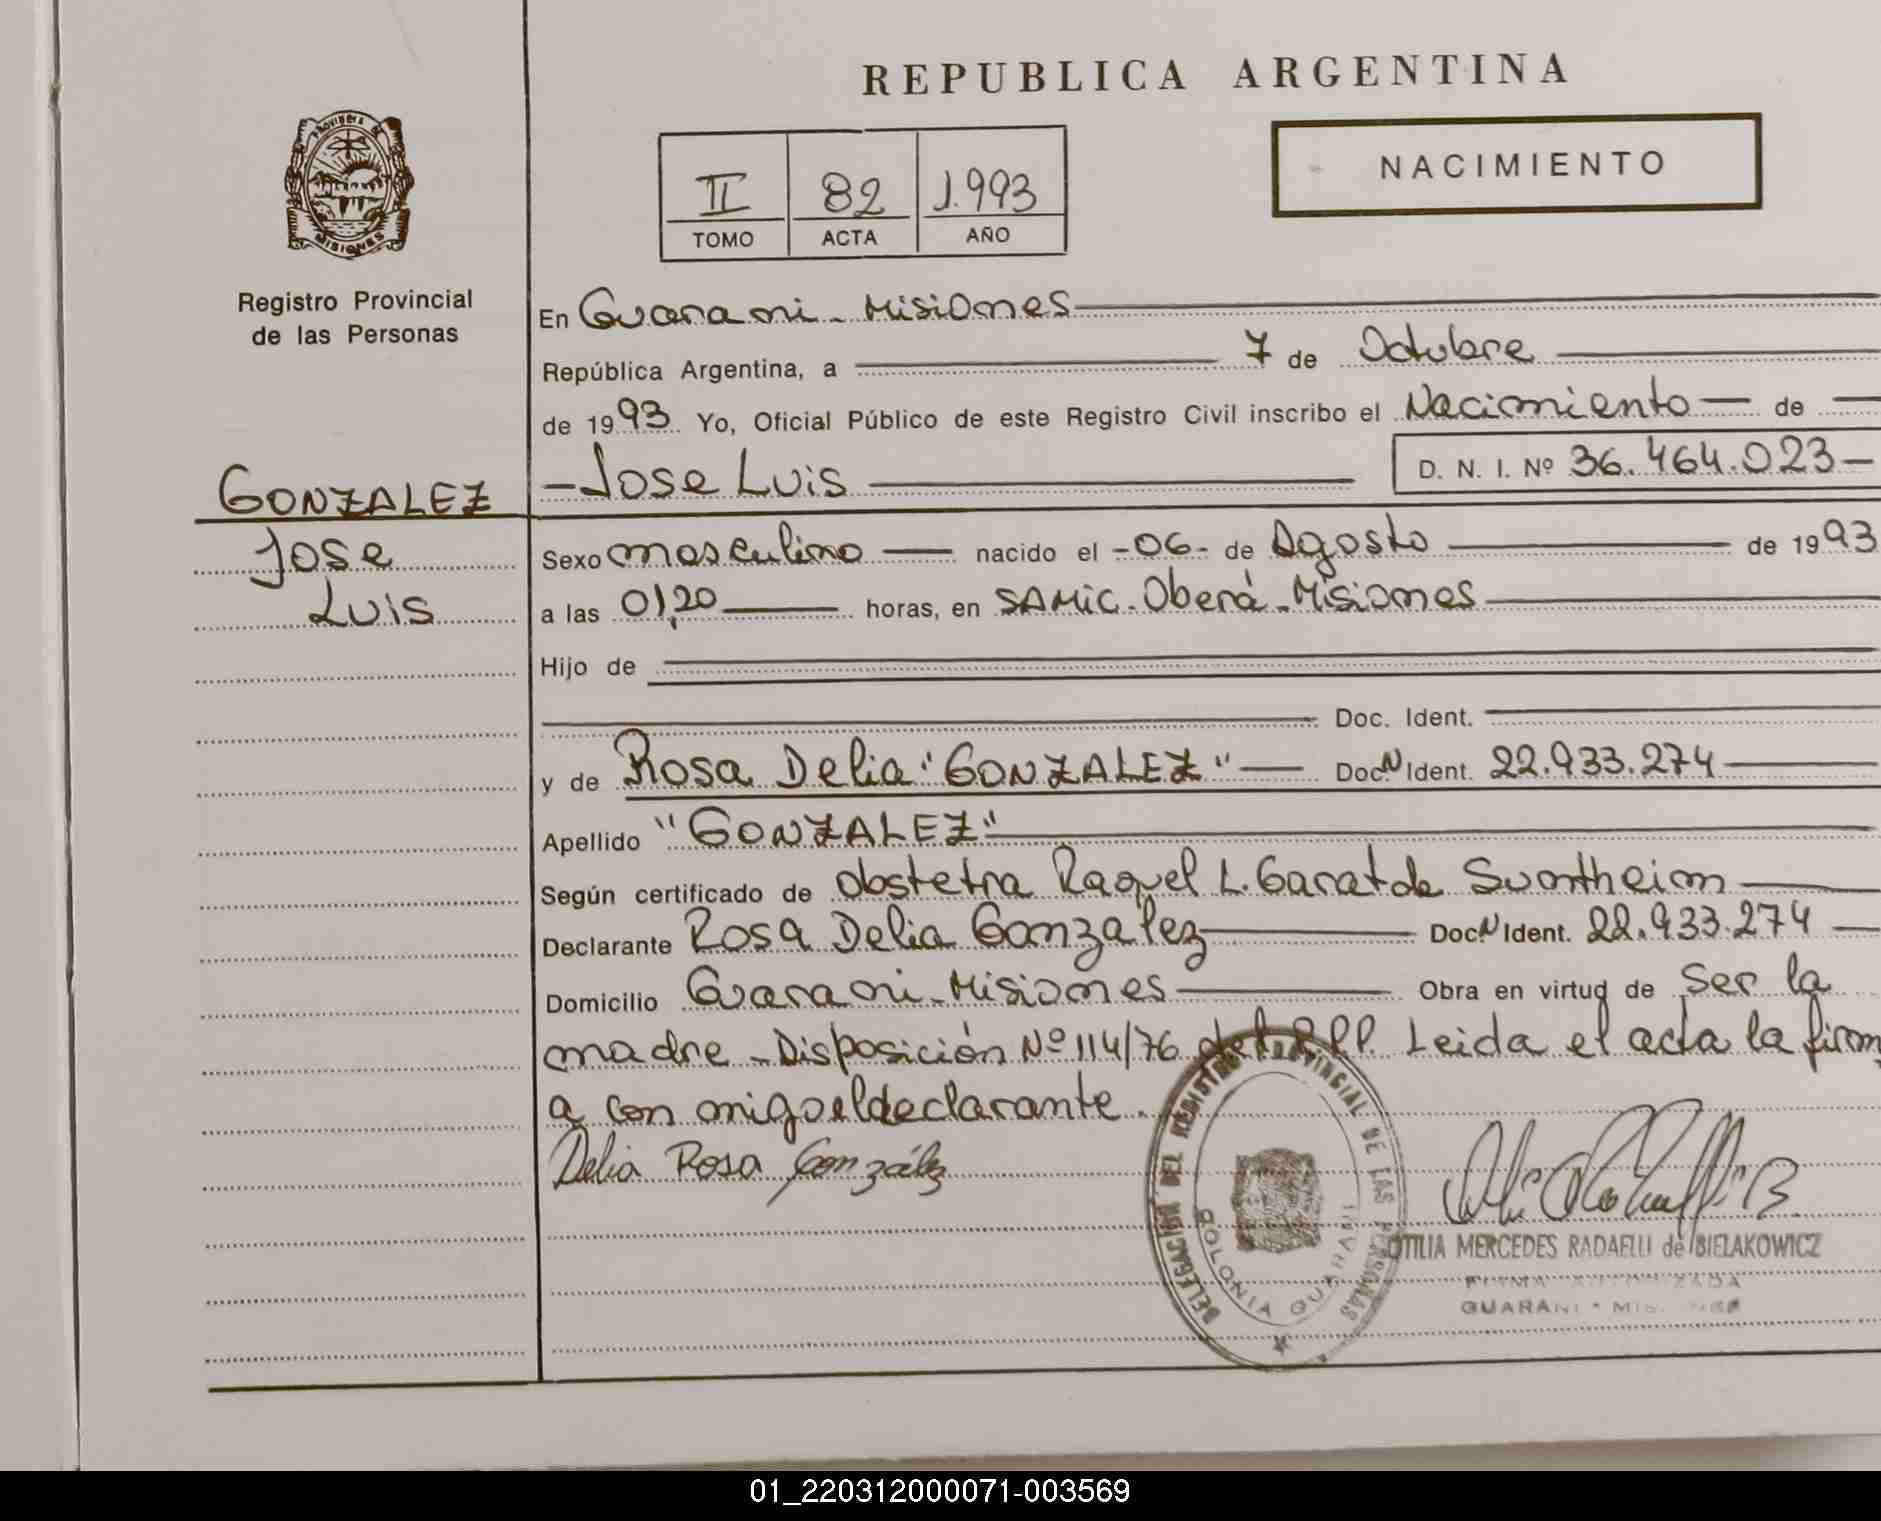 REPUBLICA ARGENTINA
PROVINCIA DE
MISIONES
Registro Provincial
de las Personas
II 82 1.993
TOMO ACTA AÑO
NACIMIENTO
En Guarani - Misiones
República Argentina, a 7 de Octubre
de 1993 Yo, Oficial Público de este Registro Civil inscribo el Nacimiento de
Jose Luis D. N. I. Nº 36.464.023
GONZALEZ
Jose
Luis
Sexo masculino nacido el -06- de Agosto de 1993
a las 01,20 horas, en SAMIC - Oberá - Misiones
Hijo de
Doc. Ident.
y de Rosa Delia "GONZALEZ" Doc. N Ident. 22.933.274
Apellido "GONZALEZ"
Según certificado de obstetra Raquel L. Garat de Suntheim
Declarante Rosa Delia Gonzalez Doc. N Ident. 22.933.274
Domicilio Guarani - Misiones Obra en virtud de ser la
madre - Disposición Nº 114/76 del R.P.P. Leida el acta la firm
a con migo el declarante.
Delia Rosa González
DELEGACIÓN DEL REGISTRO PROVINCIAL DE LAS PERSONAS
COLONIA GUARANI
OTILIA MERCEDES RADAELLI de BIELAKOWICZ
FIRMA AUTORIZADA
GUARANI - MISIONES
01_220312000071-003569